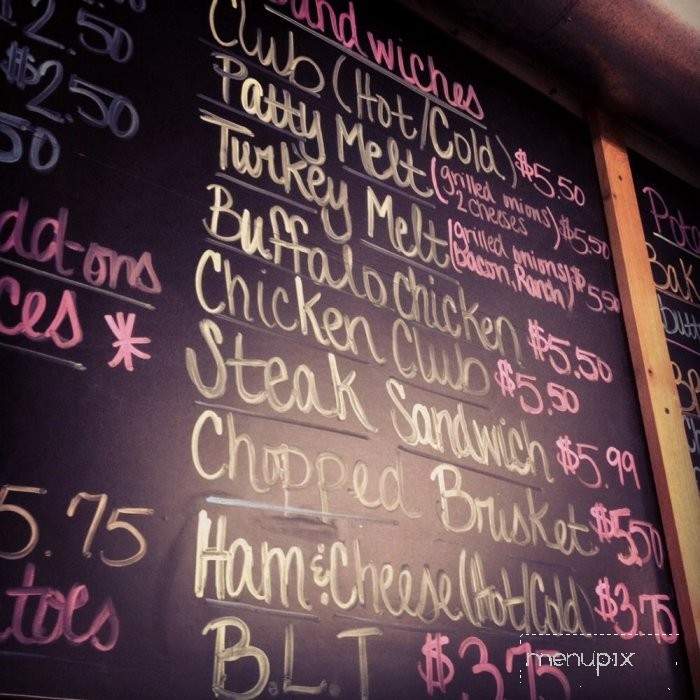 2.50
$2.50
50
dd-ons
ces *
5.75
toes
Sandwiches
Club (Hot/Cold) $5.50
Patty Melt (grilled onions) $5.50
2 cheeses
Turkey Melt (grilled onions) $5.50
Bacon, Ranch)
Buffalo chicken $5.50
Chicken Club $5.50
Steak Sandwich $5.99
Chopped Brisket $5.50
Ham & Cheese (Hot/Cold) $3.75
B.L.T $3.75
Pota
Bak
Butt
menupix